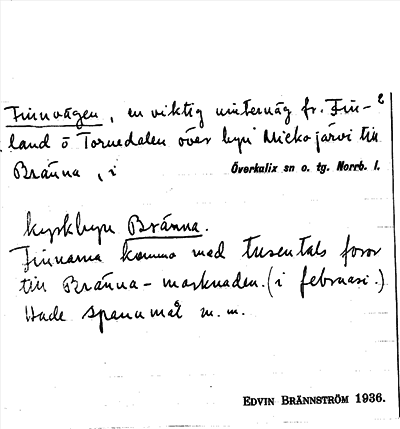 Finnvägen, en viktig vinterväg fr. Fin-
land ö Tornedalen över byn Mickojärvi till
Bränna, i Överkalix sn o. tg. Norrb. l.
kyrkbyn Bränna.
Finnarna kommo med tusentals foror
till Bränna-marknaden. (i februari.)
Hade spannmål m.m.
EDVIN BRÄNNSTRÖM 1936.